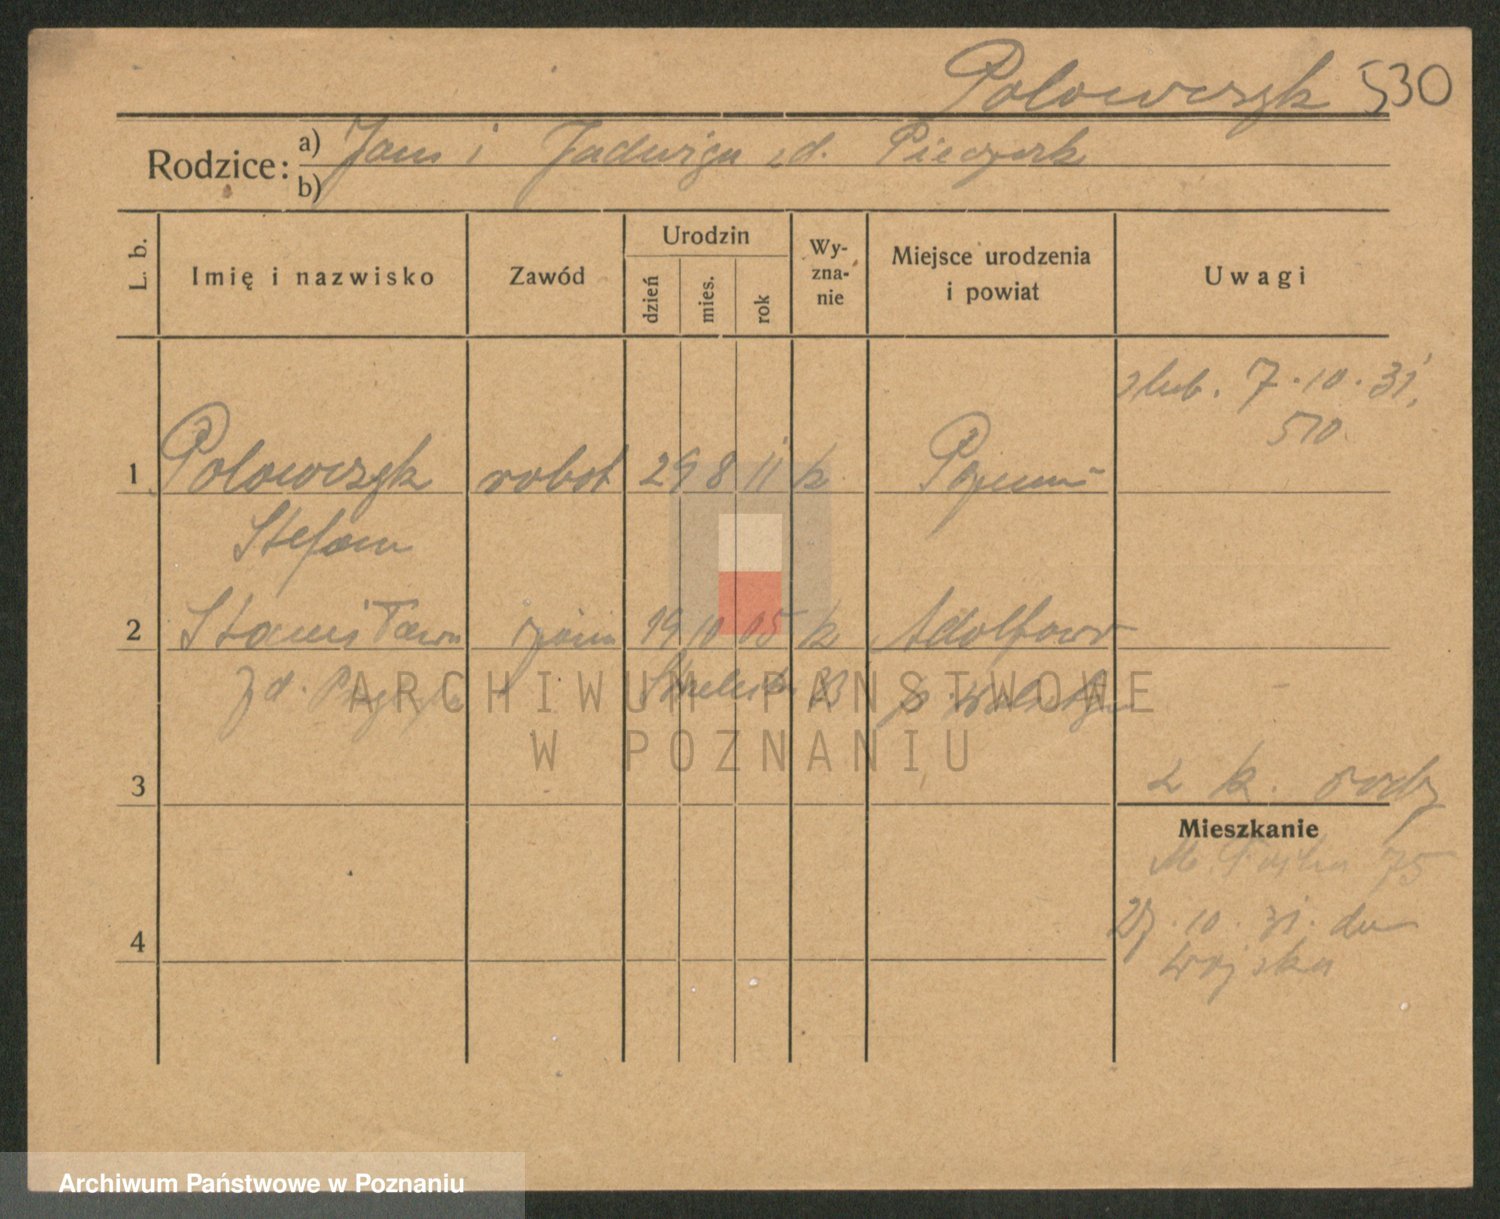 Polowczyk 530
Rodzice: a) Jan i Jadwiga zd. Pieczyrak
b)
L. b. Imię i nazwisko Zawód Urodzin dzień mies. rok Wy-zna-nie Miejsce urodzenia i powiat Uwagi
ślub. 7.10.31.
510
1 Polowczyk robot 29 8 11 k Poznań
Stefan
2 Stanisława żona 19 10 05 k Adolfowo
zd.
3 2 k. rodz
Mieszkanie
75
27.10.31. do
wojska
4
ARCHIWUM PAŃSTWOWE
W POZNANIU
Archiwum Państwowe w Poznaniu